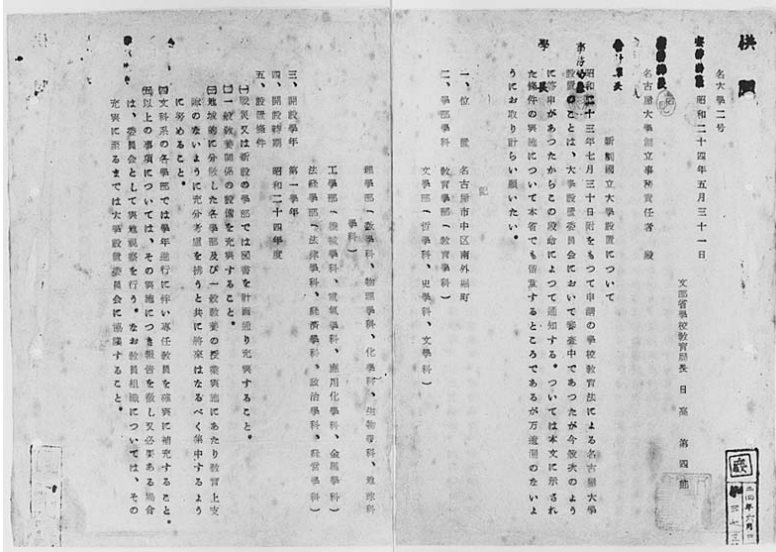 供覽
名大學二号
昭和二十四年五月三十一日
文部省學校教育局長 日高第四郎
名古屋大學創立事務責任者 殿
新制國立大學設置について
昭和二十三年七月三十日附をもつて申請の學校教育法による名古屋大學
設置のことは、大學設置委員会において審査中であつたが今般次のよう
に答申があつたからこの段
よつて通知する。ついては本文に示され
た條件の実施について本省でも留意するところであるが万遺漏のないよ
うにお取り計らい願いたい。
記
一、位 置 名古屋市中区南外堀町
二、學部學科 教育學部(教育學科)
文學部(哲學科、史學科、文學科)
理學部(数學科、物理學科、化學科、生物學科、地球科
學科)
工學部(機械學科、電氣學科、應用化學科、金属學科)
法経學部(法律學科、経済學科、政治學科、経営學科)
三、開設學年 第一學年
四、開設時期 昭和二十四年度
五、設置條件
(一)戰災又は新設の學部では図書を計画通り充実すること。
(二)一般教養関係の設備を充実すること。
(三)地域的に分散した各學部及び一般教養の授業実施にあたり教育上支
障のないように充分考慮を拂うと共に將來はなるべく集中するよう
に努めること。
(四)文科系の各學部では學年進行に伴い專任教員を確実に補充すること。
(五)以上の事項については、その実施につき報告を徴し又必要ある場合
は、委員会として実地視察を行う。なお教員組織については、その
充実に至るまでは大學設置委員会に協議すること。